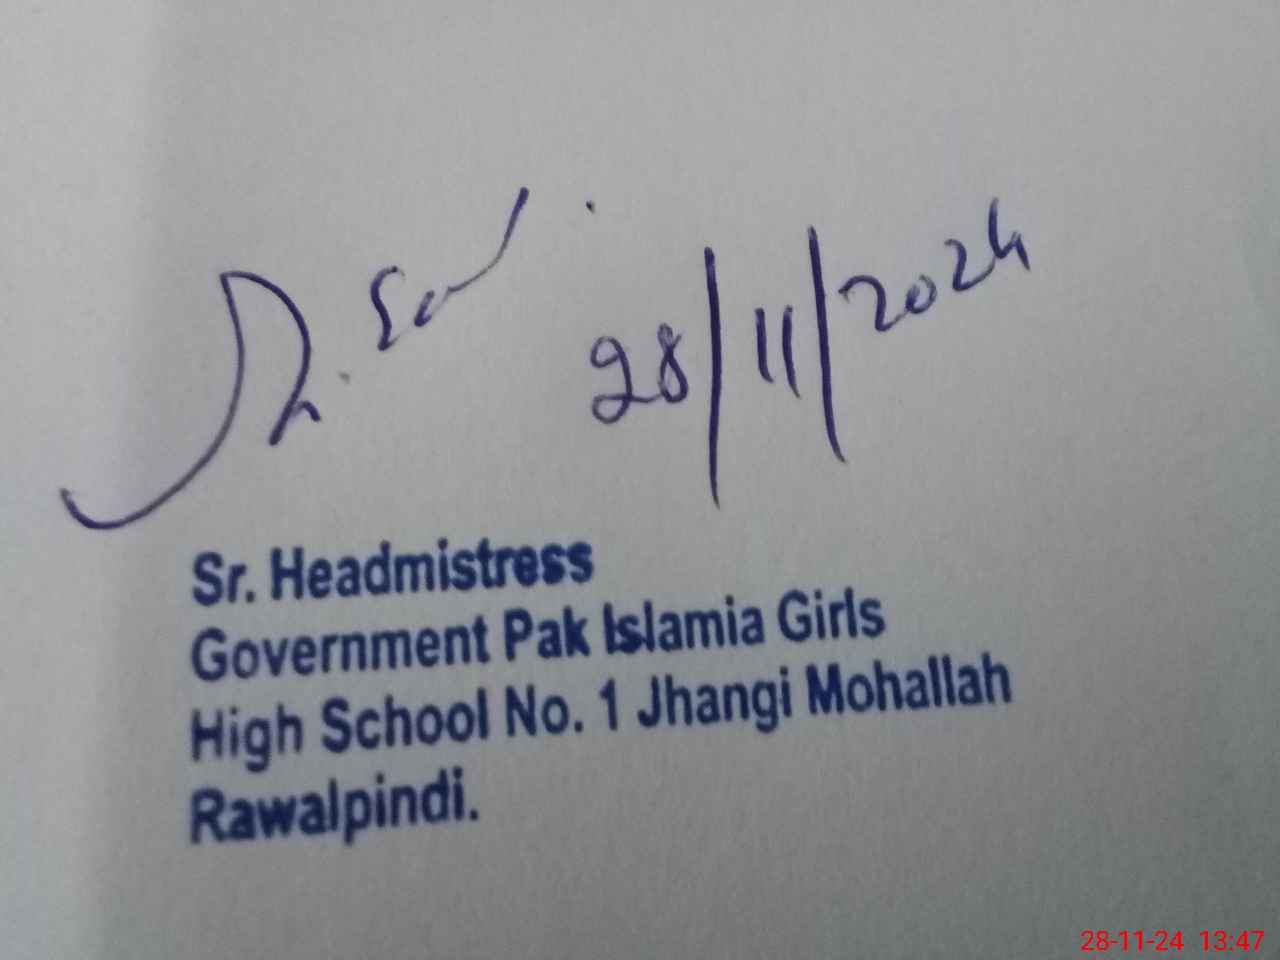 28/11/2024
Sr. Headmistress
Government Pak Islamia Girls
High School No. 1 Jhangi Mohallah
Rawalpindi.
28-11-24 13:47